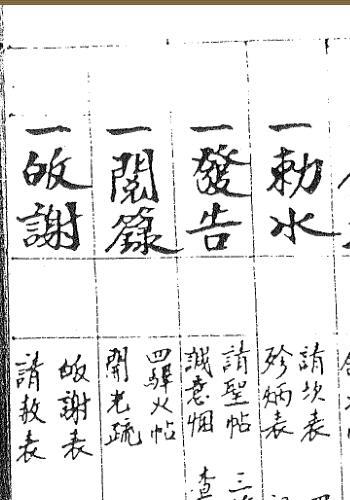 一勅水
請次表
殄炳表
一發告
請聖帖 三
誠意烟 查
一閱籙
四驛火帖
開光疏
一皈謝
皈謝表
請赦表